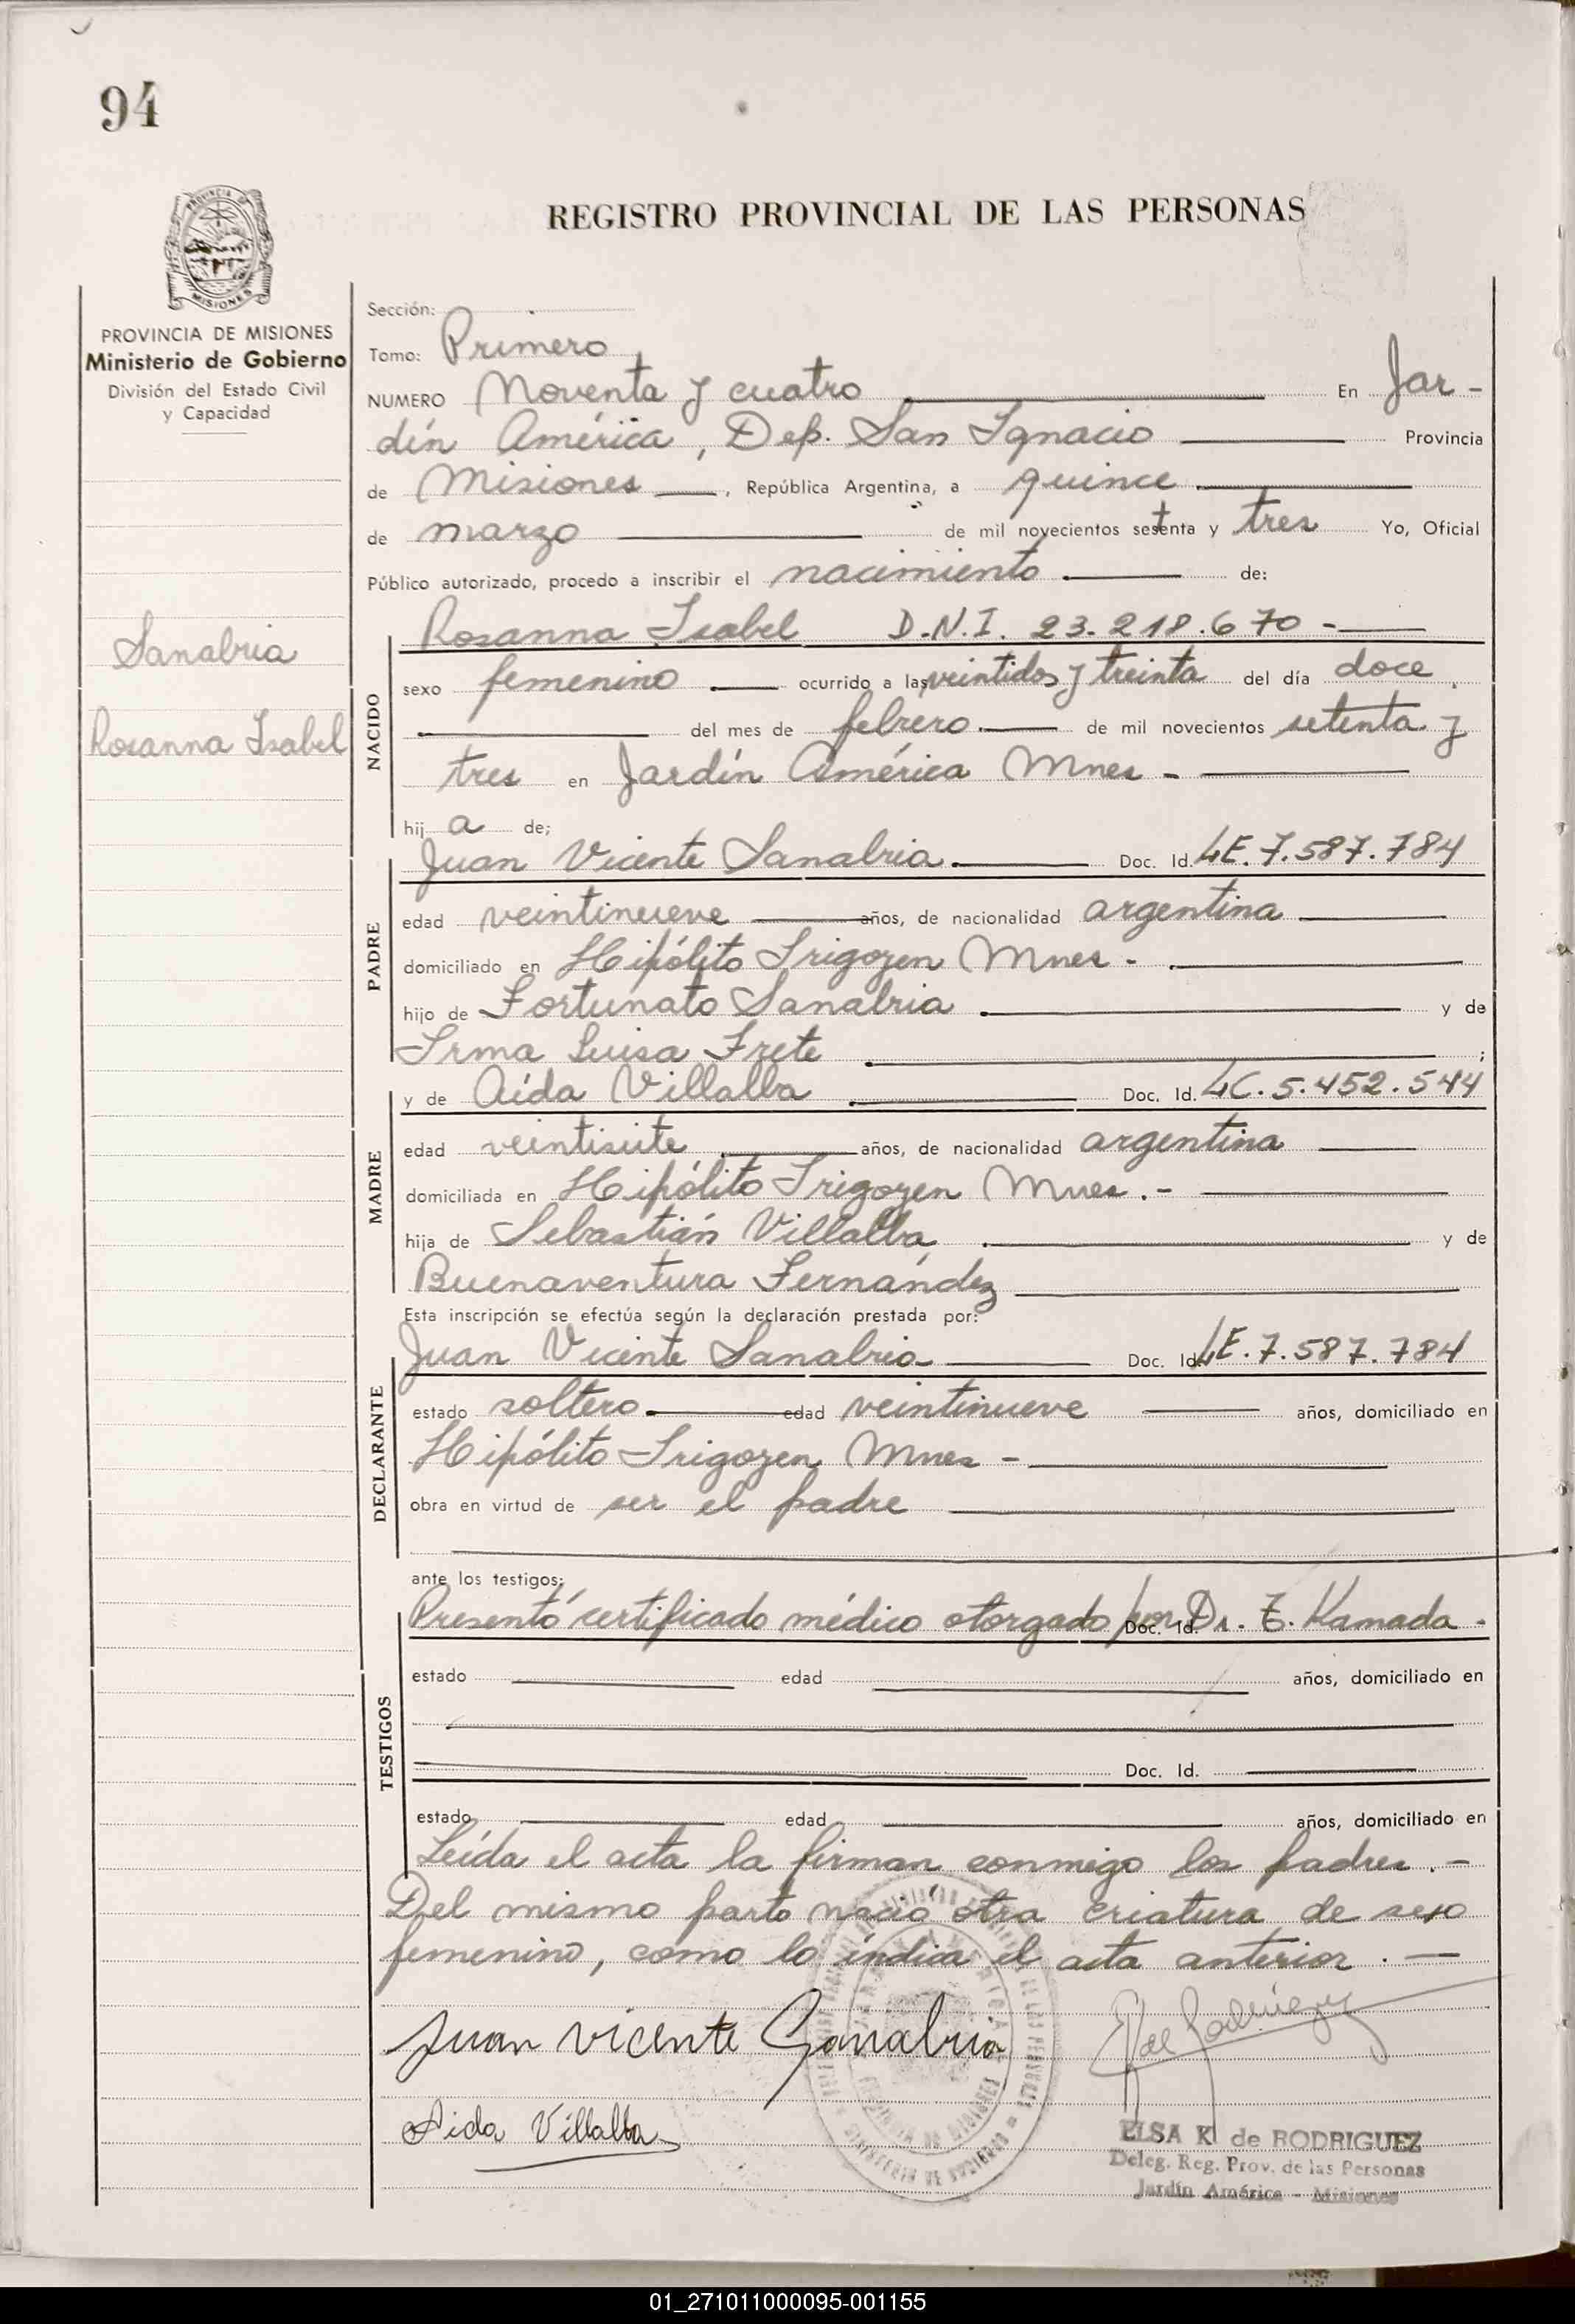 94
REGISTRO PROVINCIAL DE LAS PERSONAS
MISIONES
PROVINCIA DE MISIONES
Ministerio de Gobierno
División del Estado Civil
y Capacidad
Sanabria
Rosanna Isabel
Sección:
Tomo: Primero
NUMERO Noventa y cuatro En Jar-
dín América, Dep. San Ignacio Provincia
de Misiones, República Argentina, a quince
de marzo de mil novecientos setenta y tres Yo, Oficial
Público autorizado, procedo a inscribir el nacimiento de:
Rosanna Isabel D.N.I. 23.218.670 -
NACIDO
sexo femenino ocurrido a las veintidos y treinta del día doce
del mes de febrero de mil novecientos setenta y
tres en Jardín América Mnes -
hij a de;
Juan Vicente Sanabria Doc. Id. LE. 7.587.784
PADRE
edad veintinueve años, de nacionalidad argentina
domiciliado en Hipólito Irigoyen Mnes -
hijo de Fortunato Sanabria y de
Irma Luisa Frete ;
y de Aída Villalba Doc. Id. LC. 5.452.544
MADRE
edad veintisiete años, de nacionalidad argentina
domiciliada en Hipólito Irigoyen Mnes.-
hija de Sebastián Villalba y de
Buenaventura Fernández
Esta inscripción se efectúa según la declaración prestada por:
Juan Vicente Sanabria Doc. Id. LE. 7.587.784
DECLARANTE
estado soltero edad veintinueve años, domiciliado en
Hipólito Irigoyen Mnes -
obra en virtud de ser el padre
ante los testigos:
Presentó certificado médico otorgado por Doc. Id. Dr. Kamada.
TESTIGOS
estado edad años, domiciliado en
Doc. Id.
estado edad años, domiciliado en
Leída el acta la firman conmigo los padres.-
Del mismo parto nació otra criatura de sexo
femenino, como lo indica el acta anterior.-
Juan Vicente Sanabria
Aida Villalba
ELSA K de RODRIGUEZ
Deleg. Reg. Prov. de las Personas
Jardín América - Misiones
01_271011000095-001155